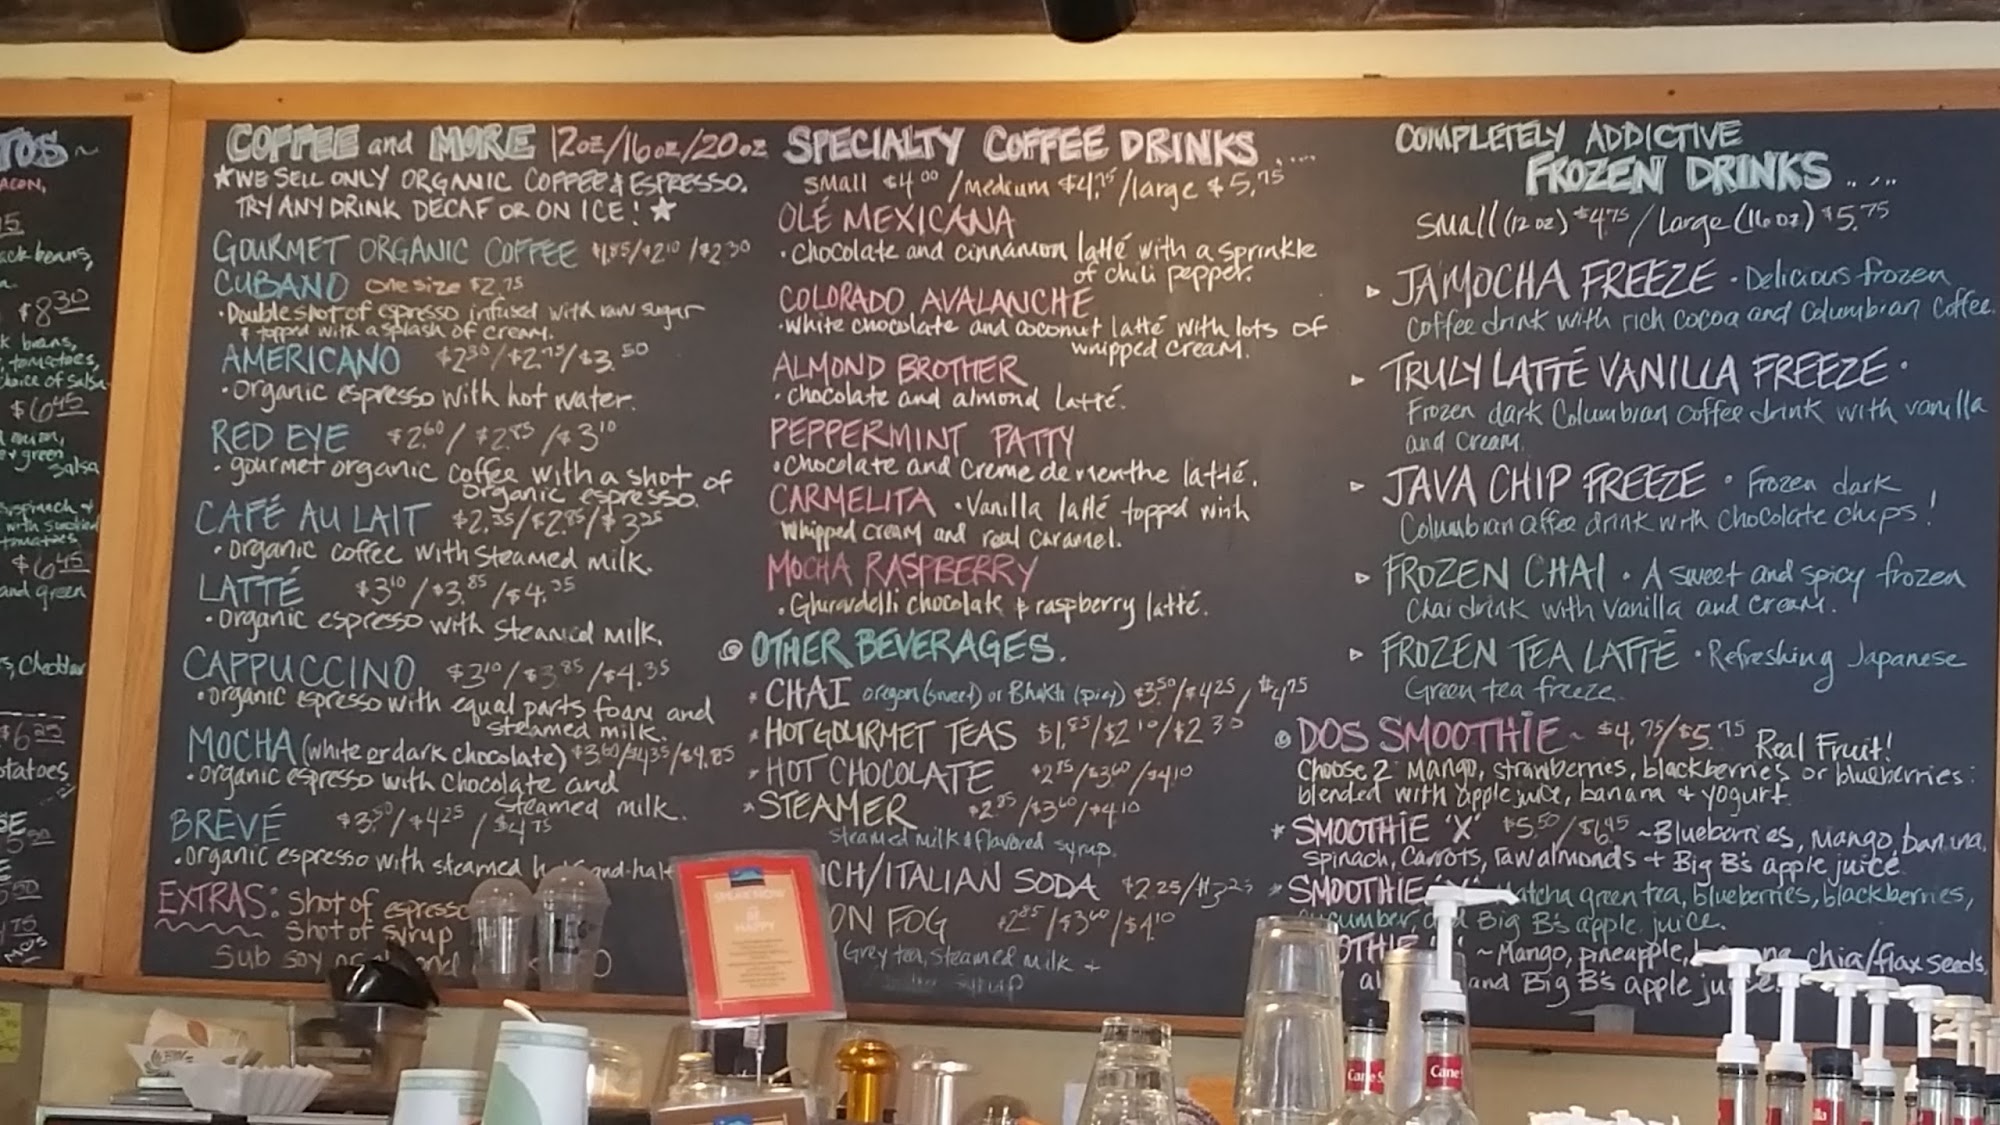 TOS~
ACON,
ack beans,
$8.30
k beans,
tomatoes,
choice of salsa
$6.45
green
salsa
spinach &
with smoked
tomatoes
$6.45
and green
s, cheddar
$6.25
otatoes
COFFEE and MORE 12oz/16oz/20oz
★WE SELL ONLY ORGANIC COFFEE & ESPRESSO.
TRY ANY DRINK DECAF OR ON ICE! ★
GOURMET ORGANIC COFFEE $1.85/$2.10/$2.30
CUBANO one size $2.75
• Double shot of espresso infused with raw sugar
& topped with a splash of cream.
AMERICANO $2.50/$2.75/$3.50
• organic espresso with hot water.
RED EYE $2.60/$2.85/$3.10
• gourmet organic coffee with a shot of
organic espresso.
CAFÉ AU LAIT $2.35/$2.85/$3.25
• organic coffee with steamed milk.
LATTÉ $3.10/$3.85/$4.35
• organic espresso with steamed milk.
CAPPUCCINO $3.10/$3.85/$4.35
• organic espresso with equal parts foam and
steamed milk.
MOCHA (white or dark chocolate) $3.60/$4.35/$4.85
• organic espresso with chocolate and
steamed milk.
BREVÉ $3.50/$4.25/$4.75
• organic espresso with steamed half-and-half
EXTRAS: shot of espresso
shot of syrup
Sub soy or
SPECIALTY COFFEE DRINKS....
small $4.00/medium $4.75/large $5.75
OLÉ MEXICANA
• chocolate and cinnamon latté with a sprinkle
of chili pepper.
COLORADO AVALANCHE
• white chocolate and coconut latté with lots of
whipped cream.
ALMOND BROTHER
• chocolate and almond latté.
PEPPERMINT PATTY
• chocolate and creme de menthe latté.
CARMELITA • Vanilla latté topped with
whipped cream and real caramel.
MOCHA RASPBERRY
• Ghirardelli chocolate & raspberry latté.
OTHER BEVERAGES.
* CHAI oregon (sweet) or Bhakti (spicy) $3.50/$4.25/$4.75
* HOT GOURMET TEAS $1.85/$2.10/$2.30
* HOT CHOCOLATE $2.85/$3.60/$4.10
* STEAMER $2.85/$3.60/$4.10
steamed milk & flavored syrup.
CH/ITALIAN SODA $2.25/$3.25
ON FOG $2.85/$3.60/$4.10
Grey tea, steamed milk +
syrup
COMPLETELY ADDICTIVE
FROZEN DRINKS....
small (12 oz) $4.75/Large (16 oz) $5.75
▹ JAMOCHA FREEZE • Delicious frozen
coffee drink with rich cocoa and Columbian coffee.
▹ TRULY LATTÉ VANILLA FREEZE •
Frozen dark Columbian coffee drink with vanilla
and cream.
▹ JAVA CHIP FREEZE • Frozen dark
Columbian coffee drink with chocolate chips!
▹ FROZEN CHAI • A sweet and spicy frozen
Chai drink with vanilla and cream.
▹ FROZEN TEA LATTÉ • Refreshing Japanese
Green tea freeze.
DOS SMOOTHIE ~ $4.75/$5.75 Real Fruit!
Choose 2 mango, strawberries, blackberries or blueberries:
blended with apple juice, banana + yogurt
* SMOOTHIE 'X' $5.50/$6.45 ~Blueberries, mango, banana,
spinach, carrots, raw almonds + Big B's apple juice
* SMOOTHIE matcha green tea, blueberries, blackberries,
cucumber, and Big B's apple juice.
OTHIE ~Mango, pineapple, banana, chia/flax seeds
and Big B's apple juice.
HAPPY
Cane S
Cane